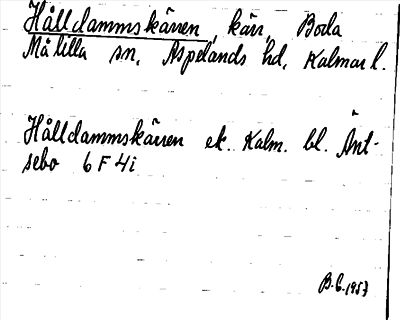 Hålldammskärren, kärr, Boda
Målilla sn, Aspelands hd, Kalmar l.
Hålldammskärren ek. Kalm. bl. Änt-
sebo 6 F 4i
B.C. 1957